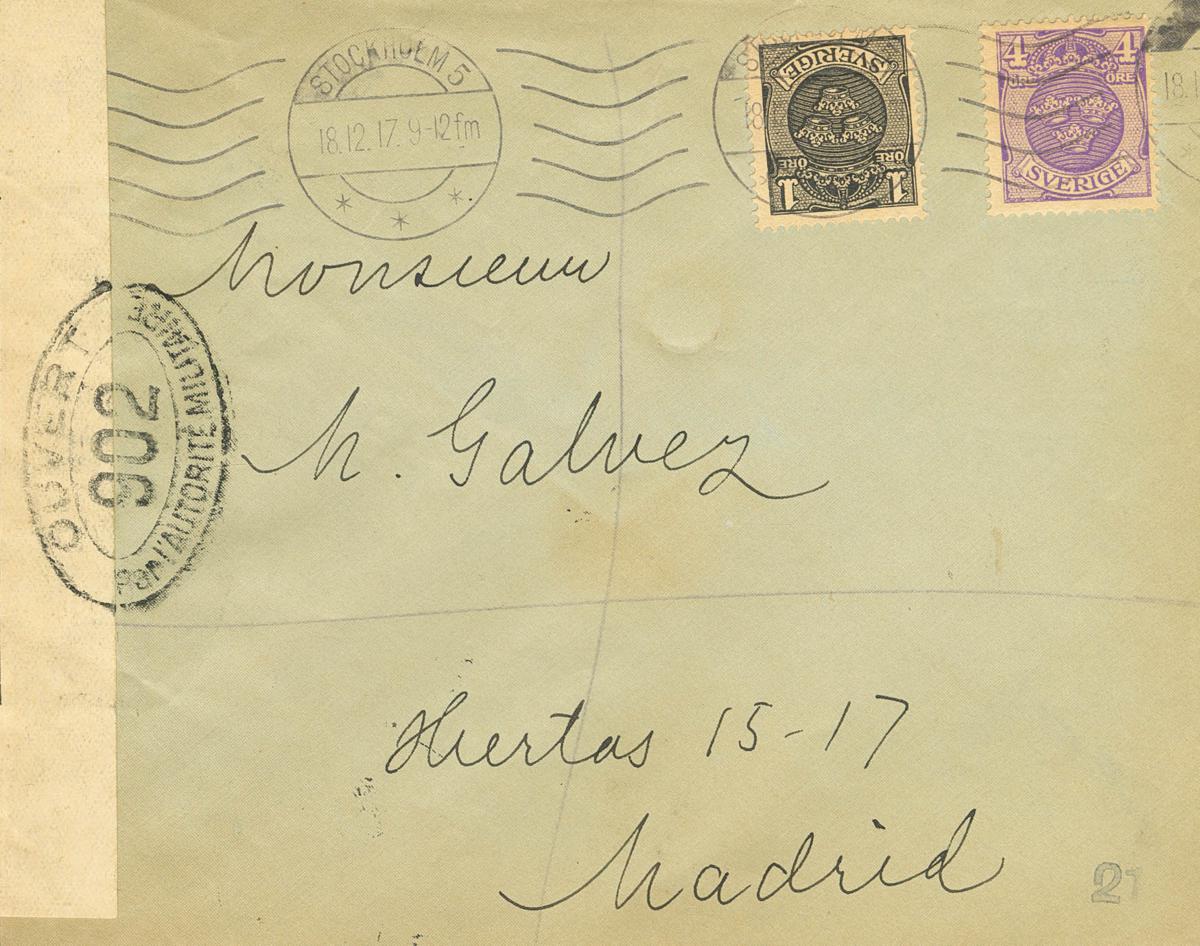 STOCKHOLM 5
18.12.17. 9-12 fm
SVERIGE
ÖRE ÖRE
1 1
4 4
ÖRE ÖRE
SVERIGE
18.1
Monsieur
OUVERT
902
PAR L'AUTORITÉ MILITAIRE
M. Galvez
Huertas 15-17
Madrid
21